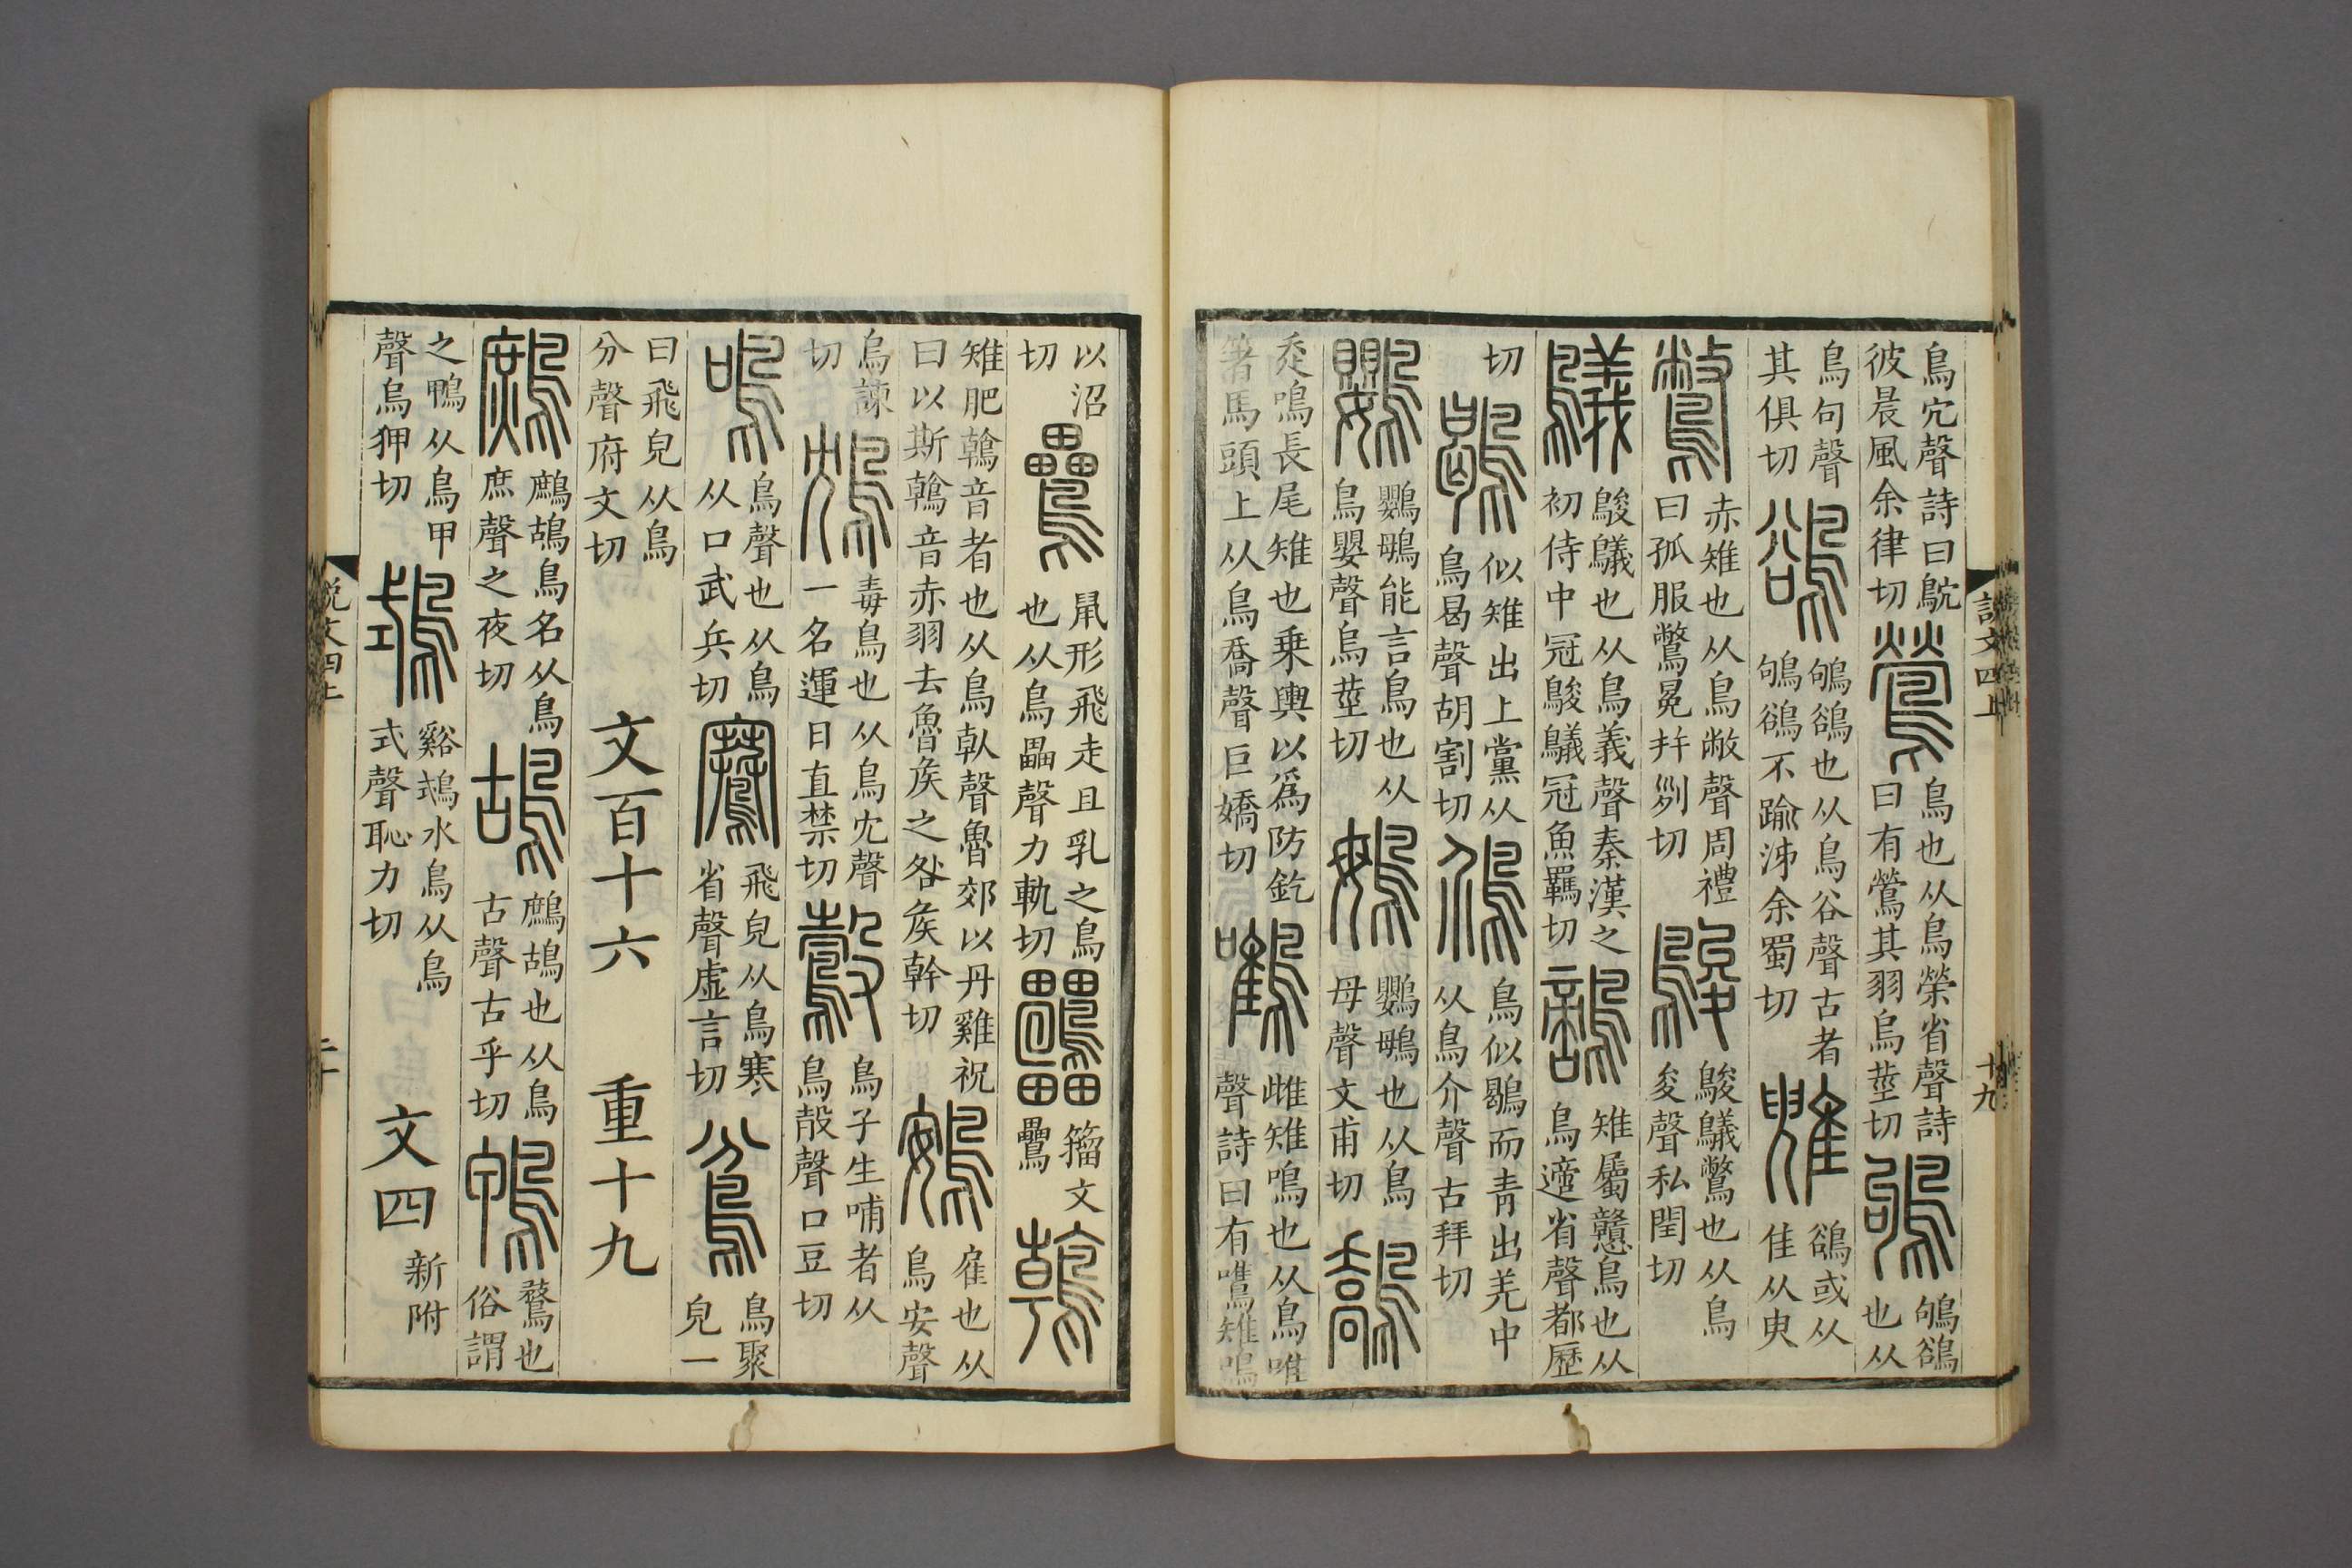 説文四上
十九
鳥穴聲詩曰鴥彼晨風余律切鶯鳥也从鳥榮省聲詩曰有鶯其羽烏莖切鴝鴝鵒也从
鳥句聲其俱切鵒鴝鵒也从鳥谷聲古者鴝鵒不踰泲余蜀切鵒或从隹从臾
鷩赤雉也从鳥敝聲周禮曰孤服鷩冕并𠛱切鵔鵔鸃鷩也从鳥夋聲私閏切
鸃鵔鸃也从鳥義聲秦漢之初侍中冠鵔鸃冠魚羈切雉屬戇鳥也从鳥適省聲都歷
切鶡似雉出上黨从鳥曷聲胡割切䲸鳥似鶡而青出羌中从鳥介聲古拜切
鸚鸚䳇能言鳥也从鳥嬰聲烏莖切䳇鸚䳇也从鳥母聲文甫切鷮
走鳴長尾雉也乗輿以爲防釳著馬頭上从鳥喬聲巨嬌切鷕雌雉鳴也从鳥唯聲詩曰有鷕雉鳴
以沼切鸓鼠形飛走且乳之鳥也从鳥畾聲力軌切籒文鸓鶾
雉肥鶾音者也从鳥倝聲魯郊以丹雞祝曰以斯鶾音赤羽去魯矦之咎矦幹切鴳雇也从鳥安聲
烏諫切鴆毒鳥也从鳥冘聲一名運日直禁切鷇鳥子生哺者从鳥㱿聲口豆切
鳴鳥聲也从鳥从口武兵切鶱飛皃从鳥寒省聲虚言切鳻鳥聚皃一
曰飛皃从鳥分聲府文切 文百十六 重十九
鷓鷓鴣鳥名从鳥庶聲之夜切鴣鷓鴣也从鳥古聲古乎切鴨鶩也俗謂
之鴨从鳥甲聲烏狎切𪀦谿𪀦水鳥从鳥式聲恥力切 文四 新附
説文四上
二十